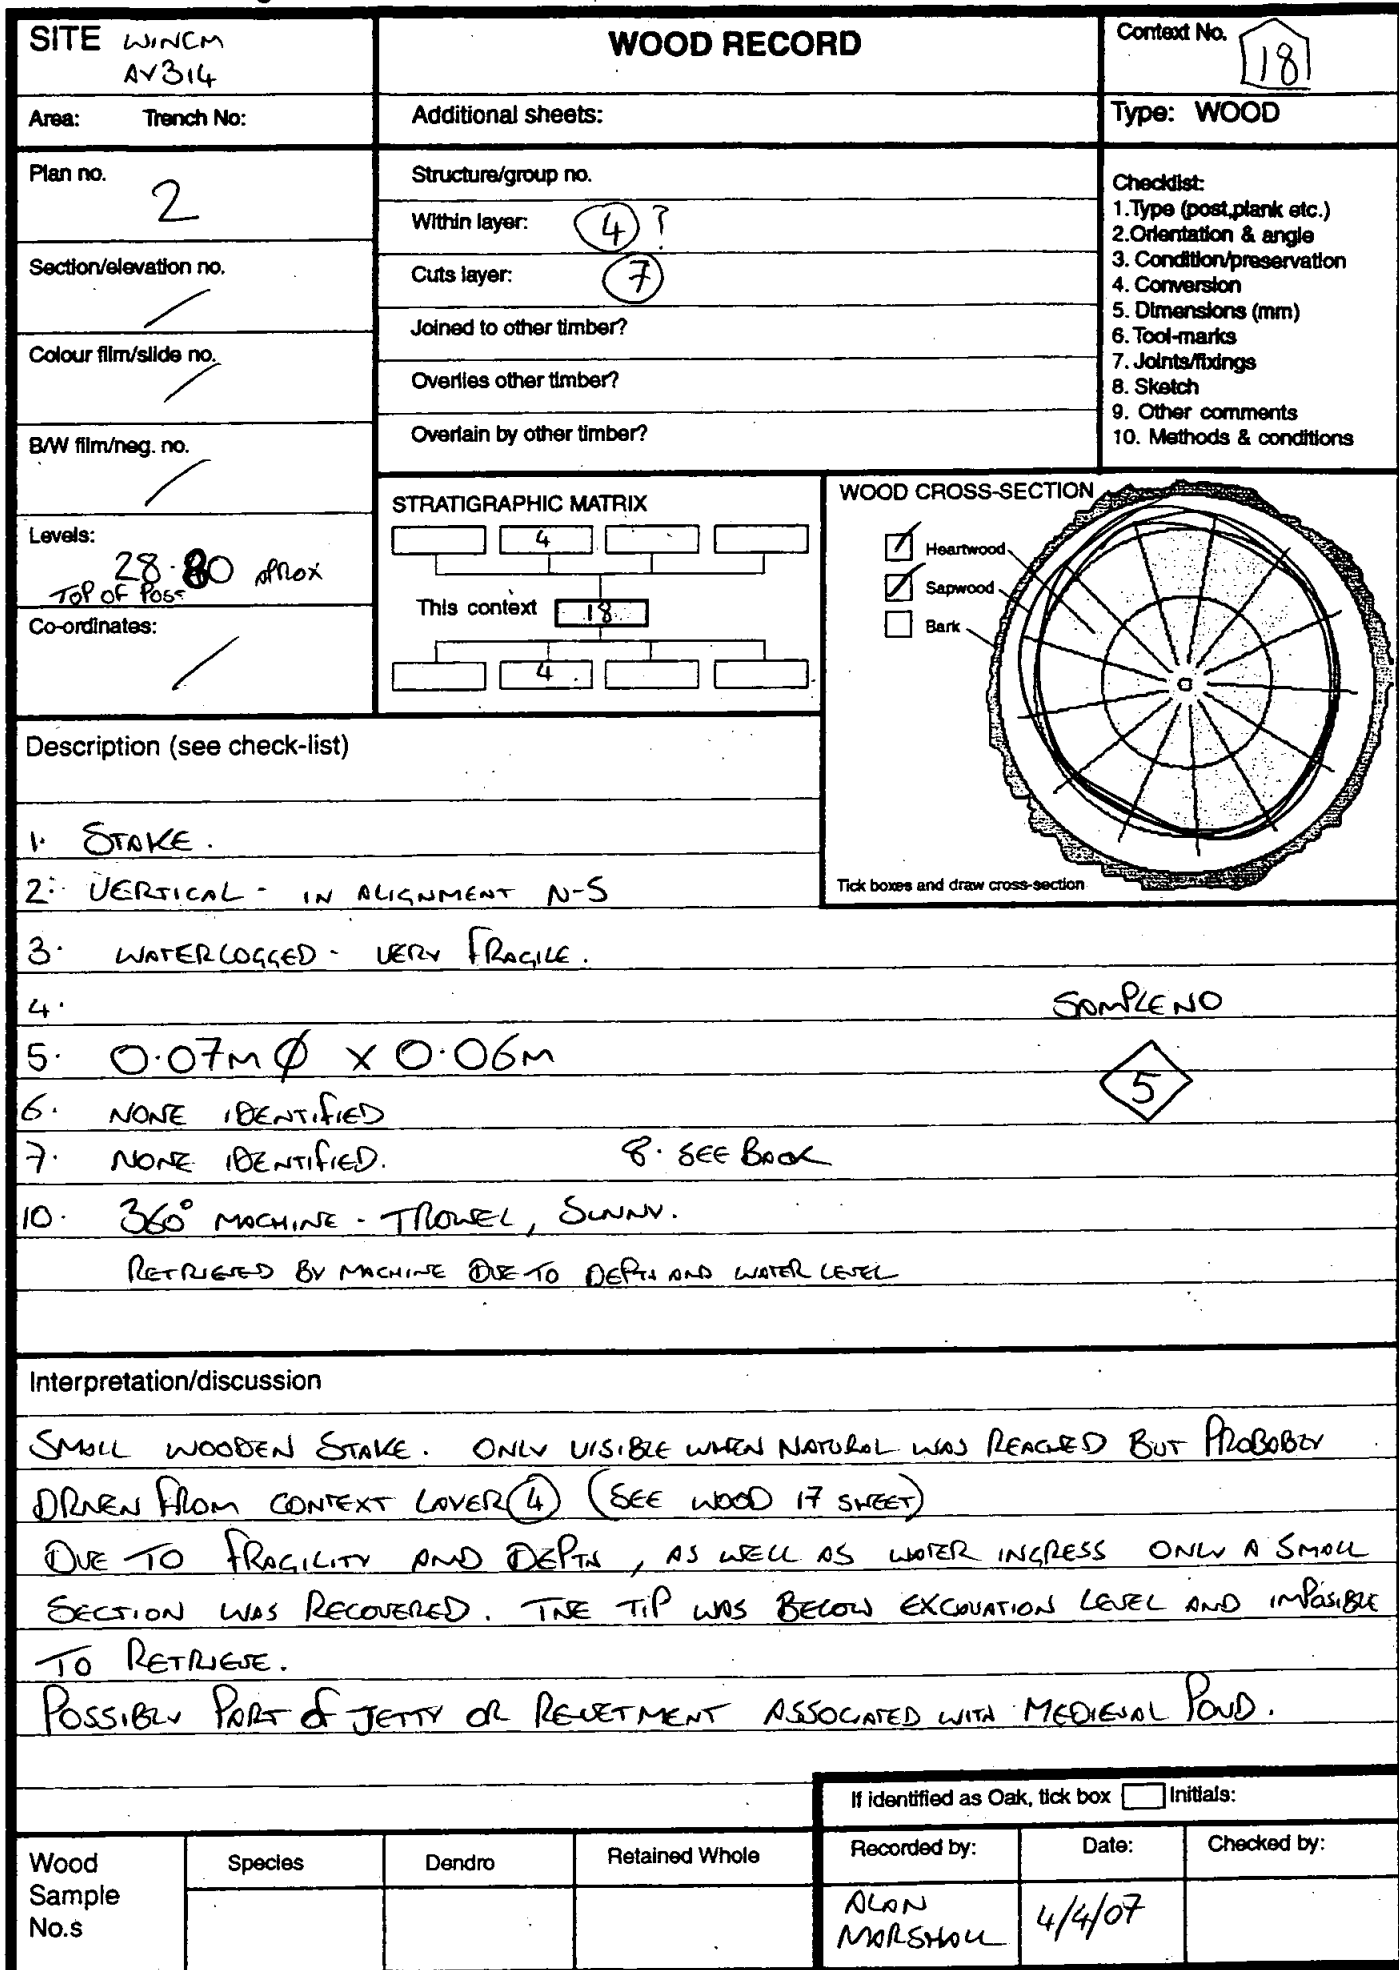 SITE WINCM
AY314
WOOD RECORD
Context No. 18
Area: Trench No:
Additional sheets:
Type: WOOD
Plan no.
2
Structure/group no.
Within layer: 4 ?
Cuts layer: 7
Joined to other timber?
Overlies other timber?
Overlain by other timber?
Checklist:
1.Type (post,plank etc.)
2.Orientation & angle
3. Condition/preservation
4. Conversion
5. Dimensions (mm)
6. Tool-marks
7. Joints/fixings
8. Sketch
9. Other comments
10. Methods & conditions
Section/elevation no.
/
Colour film/slide no.
/
B/W film/neg. no.
/
Levels:
28.80 APROX
TOP OF POST
Co-ordinates:
/
STRATIGRAPHIC MATRIX
4
This context 18
4
WOOD CROSS-SECTION
Heartwood
Sapwood
Bark
Tick boxes and draw cross-section
Description (see check-list)
1. STAKE.
2. VERTICAL - IN ALIGNMENT N-S
3. WATERLOGGED - VERY FRAGILE.
4.
SAMPLE NO
5. 0.07M Ø X 0.06M
5
6. NONE IDENTIFIED
7. NONE IDENTIFIED. 8. SEE BACK
10. 360° MACHINE - TROWEL, SUNNY.
RETRIEVED BY MACHINE DUE TO DEPTH AND WATER LEVEL
Interpretation/discussion
SMALL WOODEN STAKE. ONLY VISIBLE WHEN NATURAL WAS REACHED BUT PROBABLY
DRIVEN FROM CONTEXT LAYER 4 (SEE WOOD 17 SHEET)
DUE TO FRAGILITY AND DEPTH, AS WELL AS WATER INGRESS ONLY A SMALL
SECTION WAS RECOVERED. THE TIP WAS BELOW EXCAVATION LEVEL AND IMPOSIBLE
TO RETRIEVE.
POSSIBLY PART OF JETTY OR REVETMENT ASSOCIATED WITH MEDIEVAL POND.
If identified as Oak, tick box Initials:
Wood
Sample
No.s
Species
Dendro
Retained Whole
Recorded by:
ALAN
MARSHALL
Date:
4/4/07
Checked by: